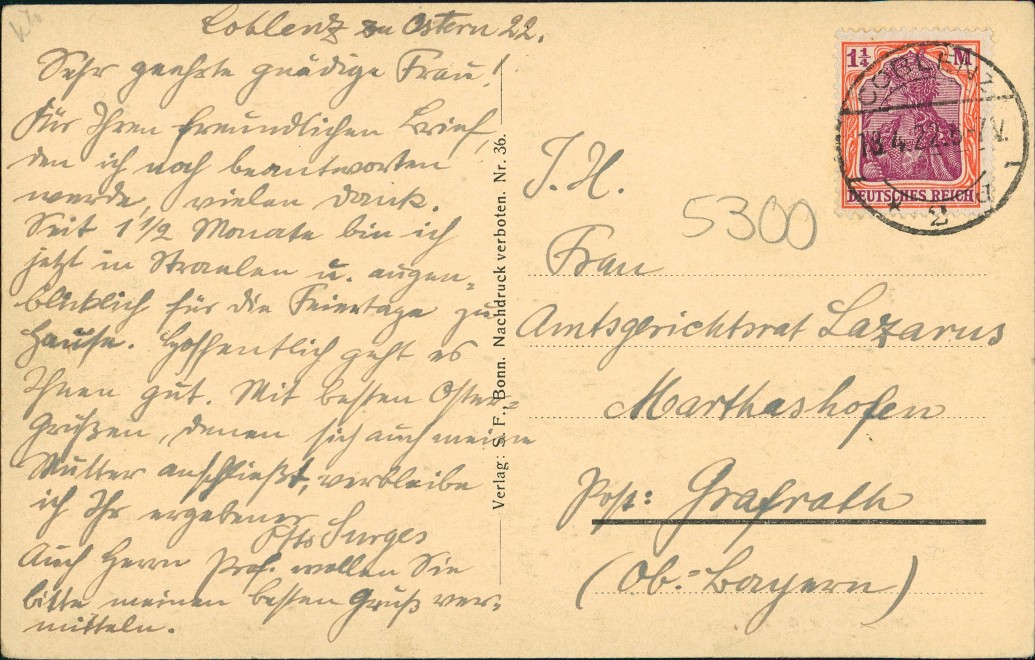 Coblenz zu Ostern 22.
Sehr geehrte gnädige Frau!
Für Ihren freundlichen Brief,
den ich noch beantworten
werde, vielen Dank.
Seit 1 1/2 Monate bin ich
jetzt in Straelen u. augen-
blicklich für die Feiertage zu
Hause. Hoffentlich geht es
Ihnen gut. Mit besten Oster-
grüßen, denen sich auch meine
Mutter anschließt, verbleibe
ich Ihr ergebener
Otto Surges
Auch Herrn Prof. wollen Sie
bitte meinen besten Gruß ver-
mitteln.
Verlag: S. F., Bonn. Nachdruck verboten. Nr. 36.
1¼ M
DEUTSCHES REICH
COBLENZ
18.4.22.
* 2 d
I. H.
5300
Frau
Amtsgerichtsrat Lazarus
Marthashofen
Post: Grafrath
(Ob.-Bayern)